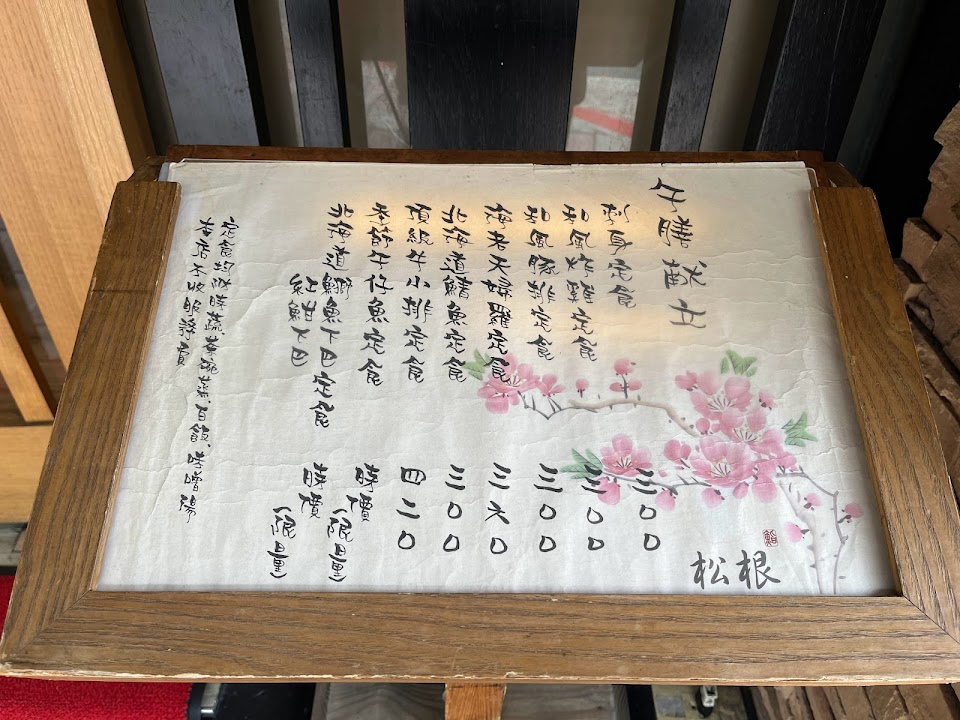 午膳献立
刺身定食 三〇〇
和風炸雞定食 三〇〇
和風豚排定食 三〇〇
海老天婦羅定食 三六〇
北海道鯖魚定食 三〇〇
頂級牛小排定食 四二〇
季節午仔魚定食 時價(限量)
北海道鰤魚下巴定食 時價(限量)
紅魽下巴
定食均附時蔬、茶碗蒸、白飯、味噌湯
本店不收服務費
松根